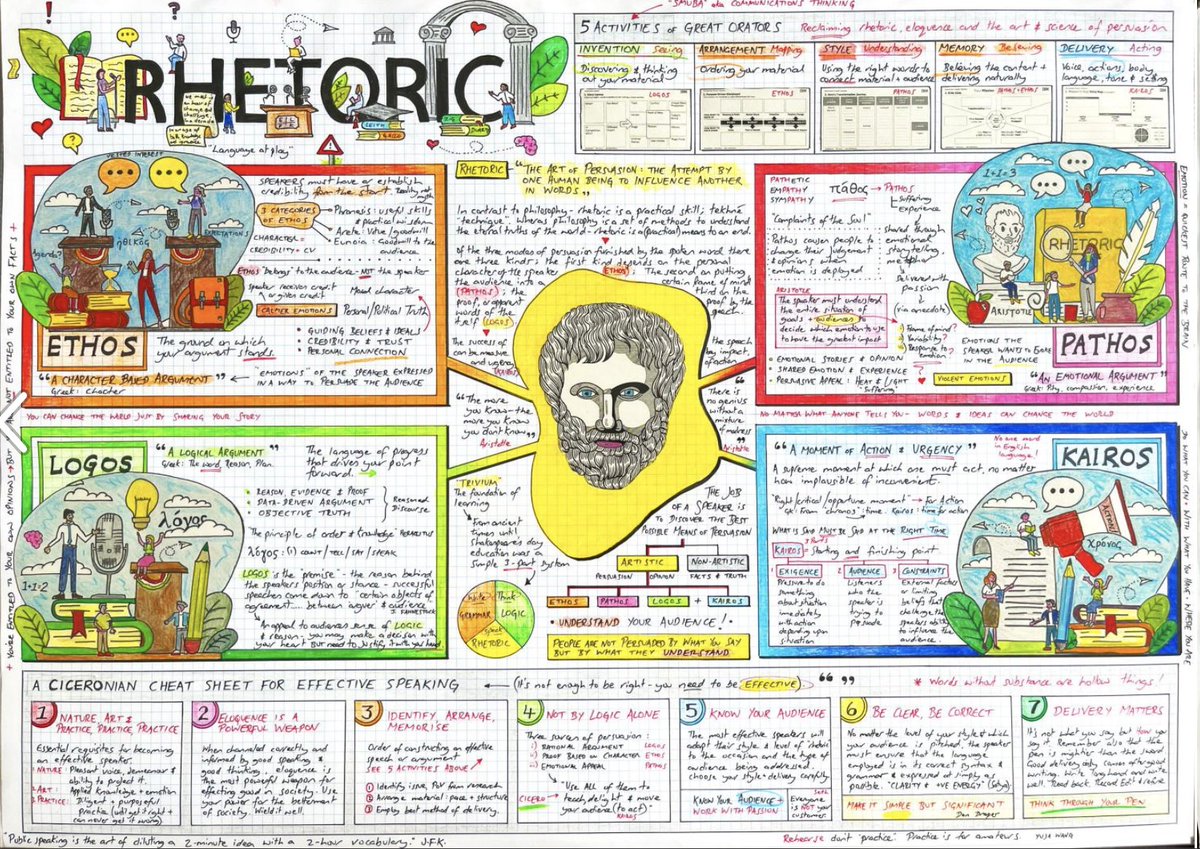 "SMUBA" aka COMMUNICATIONS THINKING
RHETORIC
"Language at play"
LEITH
5 ACTIVITIES OF GREAT ORATORS
Reclaiming rhetoric, eloquence and the art & science of persuasion
INVENTION Seeing
Discovering & thinking out your material
LOGOS
ARRANGEMENT Mapping
Ordering your material
ETHOS
STYLE Understanding
Using the right words to connect material & audience
PATHOS
MEMORY Believing
Believing the content + delivering naturally
PATHOS + ETHOS
DELIVERY Acting
Voice, actions, body language, tone & setting
KAIROS
RHETORIC "THE ART OF PERSUASION: THE ATTEMPT BY
ONE HUMAN BEING TO INFLUENCE ANOTHER
IN WORDS"
In contrast to philosophy - rhetoric is a practical skill; tekhnē
"technique". Whereas philosophy is a set of methods to understand
the eternal truths of the world - rhetoric is a (practical) means to an end.
Of the three modes of persuasion furnished by the spoken word there
are three kinds; the first kind depends on the personal
character of the speaker (ETHOS); The second on putting
the audience into a certain frame of mind
(PATHOS); the third on the
proof, or apparent proof by the
words of the speech
itself (LOGOS)
VESTED INTEREST
ἠθικός
EXPECTATIONS
Agenda?
SPEAKERS must have or establish
credibility from the start
3 CATEGORIES OF ETHOS
Phronesis: useful skills
& practical wisdom
Arete: Virtue/goodwill
Eunoia: Goodwill to the
audience
CHARACTER =
CREDIBILITY + CV
ETHOS belongs to the audience - NOT the speaker
speaker receives credit
or given credit
Moral character
CALMER EMOTIONS
Personal/Political Truth
• GUIDING BELIEFS & IDEALS
• CREDIBILITY & TRUST
• PERSONAL CONNECTION
ETHOS
The ground on which
your argument stands.
"A CHARACTER BASED ARGUMENT"
"EMOTIONS" OF THE SPEAKER EXPRESSED
IN A WAY TO PERSUADE THE AUDIENCE
PATHETIC
EMPATHY
SYMPATHY
πᾰθος → PATHOS
Suffering
experience
"Complaints of the Soul"
Pathos causes people to
change their judgement
& opinions when
emotion is deployed
shared through
emotional
storytelling
Delivered with
passion
(via anecdote)
ARISTOTLE
The speaker must understand
the entire situation of
goals + audiences to
decide which emotion to use
to have the greatest impact
Frame of mind?
Variability?
Response to emotion?
• EMOTIONAL STORIES & OPINION
• SHARED EMOTION & EXPERIENCE
• PERSUASIVE APPEAL: HEAT & LIGHT
"Suffering"
EMOTIONS THE
SPEAKER WANTS TO EVOKE
IN THE AUDIENCE
VIOLENT EMOTIONS
1+2=3
RHETORIC
ARISTOTLE
PATHOS
"AN EMOTIONAL ARGUMENT"
Greek: Pity, compassion, experience
EMOTION = QUICKEST ROUTE TO THE BRAIN
YOU CAN CHANGE THE WORLD JUST BY SHARING YOUR STORY
NO MATTER WHAT ANYONE TELLS YOU - WORDS & IDEAS CAN CHANGE THE WORLD
+ YOU'RE ENTITLED TO YOUR OWN OPINIONS → BUT NOT ENTITLED TO YOUR OWN FACTS +
DO WHAT YOU CAN + WITH WHAT YOU HAVE + WHERE YOU ARE
"The more
you know - the
more you know
you don't know"
Aristotle
"There is
no genius
without a
mixture
of madness"
Aristotle
LOGOS
"A LOGICAL ARGUMENT"
Greek: The word, Reason, Plan.
The language of progress
that drives your point
forward.
• REASON EVIDENCE & PROOF
• DATA-DRIVEN ARGUMENT
• OBJECTIVE TRUTH
Reasoned
Discourse
The principle of order & knowledge HERACLITUS
λόγος: (I) COUNT/TELL/SAY/SPEAK
LOGOS is the premise - the reason behind
the speakers position or stance - successful
speeches come down to "certain objects of
agreement..... between arguer & audience"
An appeal to audiences sense of LOGIC
& reason: you may make a decision with
your heart but need to justify it with your head.
λόγος
"TRIVIUM"
The foundation of
learning
From ancient
times until
Shakespeare's day
education was a
simple 3-part system
Write
GRAMMAR
Think
LOGIC
Speak
RHETORIC
THE JOB
OF A SPEAKER IS
TO DISCOVER THE BEST
POSSIBLE MEANS OF PERSUASION
ARTISTIC
NON-ARTISTIC
PERSUASION OPINION FACTS & TRUTH
ETHOS PATHOS LOGOS + KAIROS
• UNDERSTAND YOUR AUDIENCE! •
PEOPLE ARE NOT PERSUADED BY WHAT YOU SAY
BUT BY WHAT THEY UNDERSTAND
"A MOMENT OF ACTION & URGENCY"
No one word
in English
language!
KAIROS
A supreme moment at which one must act, no matter
how implausible or inconvenient.
"Right/critical/opportune moment" → For Action
Gk: from 'chronos': time. Kairos: time for action
WHAT IS SAID MUST BE SAID AT THE RIGHT TIME
3 Parts
KAIROS = Starting and finishing point
1 EXIGENCE
Pressure to do
something
about situation
immediately
with action
depending upon
situation
2 AUDIENCE
Listeners
who the
speaker is
trying to
persuade
3 CONSTRAINTS
External factors
or limiting
beliefs that
challenge the
speakers ability
to influence the
audience.
ACTION!
Χρόνος
A CICERONIAN CHEAT SHEET FOR EFFECTIVE SPEAKING
(It's not enough to be right - you need to be EFFECTIVE)
* Words without substance are hollow things!
1 NATURE, ART &
PRACTICE, PRACTICE, PRACTICE
Essential requisites for becoming
an effective speaker.
1. NATURE: Pleasant voice, demeanour &
ability to project it.
2. ART: Applied knowledge + emotion
3. PRACTICE: Diligent + purposeful
practice (until get it right +
can never get it wrong)
2 ELOQUENCE IS A
POWERFUL WEAPON
When channeled correctly and
informed by good speaking &
good thinking. eloquence is
the most powerful weapon for
effecting good in society. Use
your power for the betterment
of society. Wield it well.
3 IDENTIFY, ARRANGE,
MEMORISE
Order of constructing an effective
speech or argument
SEE 5 ACTIVITIES ABOVE
1 Identify issue, PoV from research
2 Arrange material: pace + structure
3 Employ best means of delivery.
4 NOT BY LOGIC ALONE
Three sources of persuasion:
i) RATIONAL ARGUMENT LOGOS
ii) PROOF BASED ON CHARACTER ETHOS
iii) EMOTIONAL APPEAL PATHOS
CICERO
"Use ALL of them to
teach, delight & move
your audience (to act)"
KAIROS
5 KNOW YOUR AUDIENCE
The most effective speakers will
adapt their style & level of rhetoric
to the occasion and the type of
audience being addressed.
choose your style + delivery carefully
KNOW YOUR AUDIENCE +
WORK WITH PASSION
Seth
Everyone
is NOT your
customer.
6 BE CLEAR, BE CORRECT
No matter the level of your style & which
your audience is pitched, the speaker
must ensure that the language
employed is in its correct syntax &
grammar & expressed at simply as
possible. "CLARITY & +VE ENERGY"
MAKE IT SIMPLE BUT SIGNIFICANT
Don Draper
7 DELIVERY MATTERS
It's not what you say but how you
say it. Remember also that the
pen is mightier than the sword.
Good delivery only comes after good
writing. Write longhand and write
well. Read back. Record. Edit & refine.
THINK THROUGH YOUR PEN
"Public speaking is the art of diluting a 2-minute idea with a 2-hour vocabulary." J.F.K.
Rehearse don't "practice". Practice is for amateurs. YUJA WANG